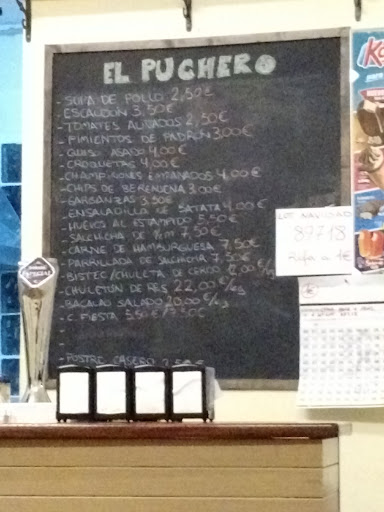 EL PUCHERO
- SOPA DE POLLO 2,50€
- ESCALDON 3,50€
- TOMATES ALIÑADOS 2,50€
- PIMIENTOS DE PADRÓN 3,00€
- QUESO ASADO 4,00€
- CROQUETAS 4,00€
- CHAMPIÑONES EMPANADOS 4,00€
- CHIPS DE BERENJENA 3,00€
- GARBANZAS 3,50€
- ENSALADILLA DE BATATA 4,00€
- HUEVOS AL ESTAMPIDO 5,50€
- SALCHICHA DE ½m 7,50€
- CARNE DE HAMBURGUESA 7,50€
- PARRILLADA DE SALCHICHA 7,50€
- BISTEC/CHULETA DE CERDO 12,00€/kg
- CHULETÓN DE RES 22,00€/kg
- BACALAO SALADO 20,00€/kg
- C. FIESTA 5,50€/7,50€
- POSTRE CASERO 2,50€
LOT. NAVIDAD
89718
Rifa a 1€